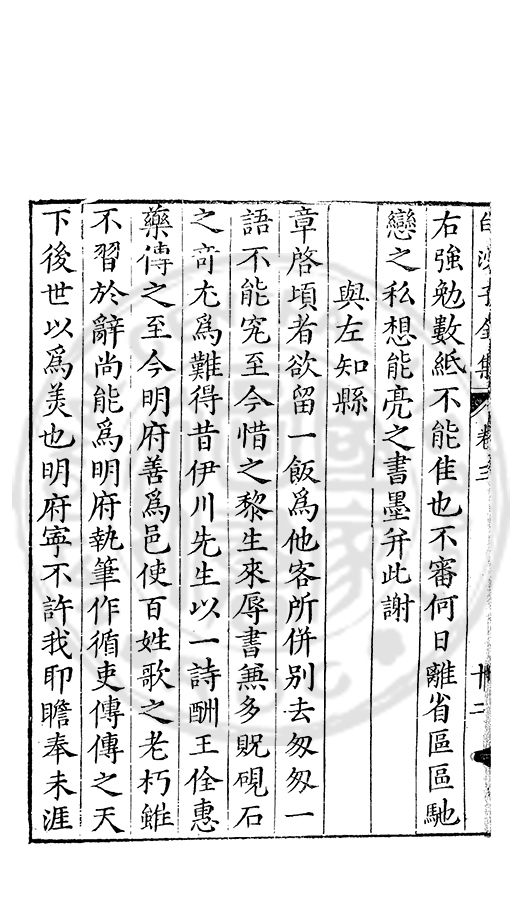 白沙子全集 卷三 廿二
右強勉數紙不能佳也不審何日離省區區馳
戀之私想能亮之書墨并此謝
與左知縣
章啓頃者欲留一飯爲他客所併別去匆匆一
語不能究至今惜之黎生來辱書兼多貺硯石
之奇尤爲難得昔伊川先生以一詩酬王佺惠
藥傳之至今明府善爲邑使百姓歌之老朽雖
不習於辭尚能爲明府執筆作循吏傳傳之天
下後世以爲美也明府寧不許我耶瞻奉未涯